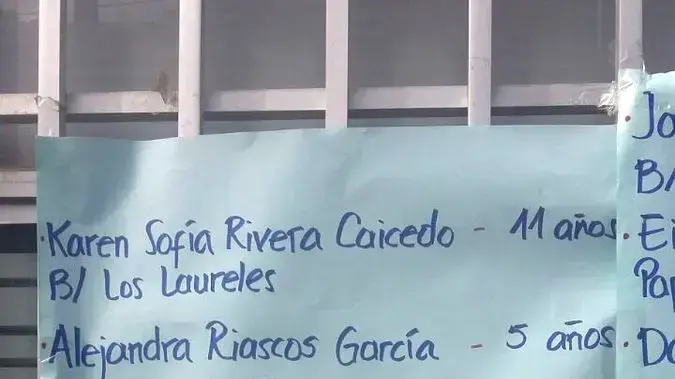 · Karen Sofía Rivera Caicedo - 11 años
B/ Los Laureles
· Alejandra Riascos García - 5 años
· Jo
B/
· Ei
Pap
· Da